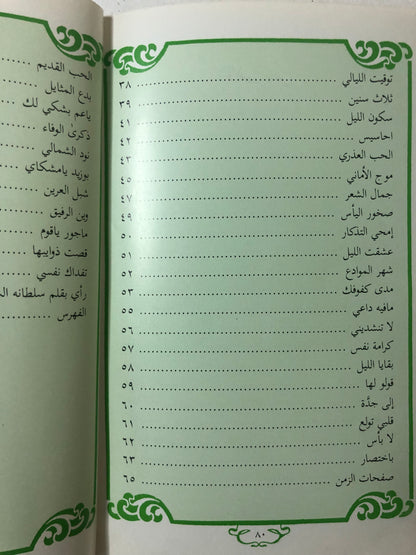 توقيت الليالي ........ ٣٨
ثلاث سنين ........ ٣٩
سكون الليل ........ ٤١
احاسيس ........ ٤٢
الحب العذري ........ ٤٣
موج الأماني ........ ٤٥
جمال الشعر ........ ٤٧
صخور اليأس ........ ٤٩
إمحي التذكار ........ ٥٠
عشقت الليل ........ ٥١
شهر الموادع ........ ٥٢
مدى كفوفك ........ ٥٣
مافيه داعي ........ ٥٥
لا تنشديني ........ ٥٦
كرامة نفس ........ ٥٧
بقايا الليل ........ ٥٨
قولو لها ........ ٥٩
إلى جدَّة ........ ٦٠
قلبي تولع ........ ٦١
لا بأس ........ ٦٢
باختصار ........ ٦٣
صفحات الزمن ........ ٦٥
٨٠
الحب القديم ........
بدع المثايل ........
ياعم بشكي لك ........
ذكرىٰ الوفاء ........
نود الشمالي ........
بوزيد يامشكاي ........
شبل العرين ........
وين الرفيق ........
ماجور ياقوم ........
قصت ذوايبها ........
تفداك نفسي ........
رأي بقلم سلطانه
الفهرس ........